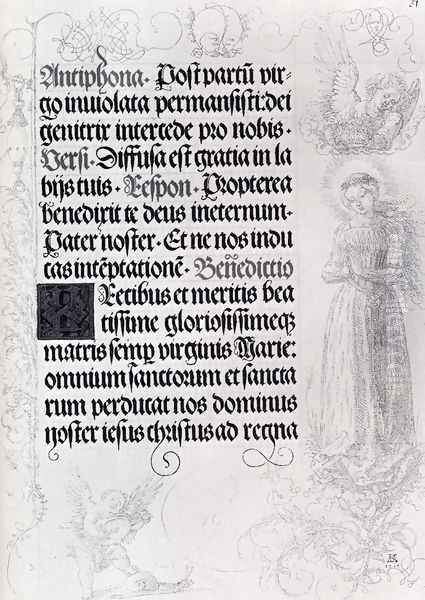 Antiphona. Post partū vir-
go inuiolata permansisti: dei
genitrix intercede pro nobis.
Versi. Diffusa est gratia in la
bijs tuis. Respon. Propterea
benedixit te deus ineternum.
Pater noster. Et ne nos indu
cas intēptationē. Benedictio
PRecibus et meritis bea
tissime gloriosissimeqꝫ
matris semꝑ virginis Marie:
omnium sanctorum et sancta
rum perducat nos dominus
noster iesus christus ad regna